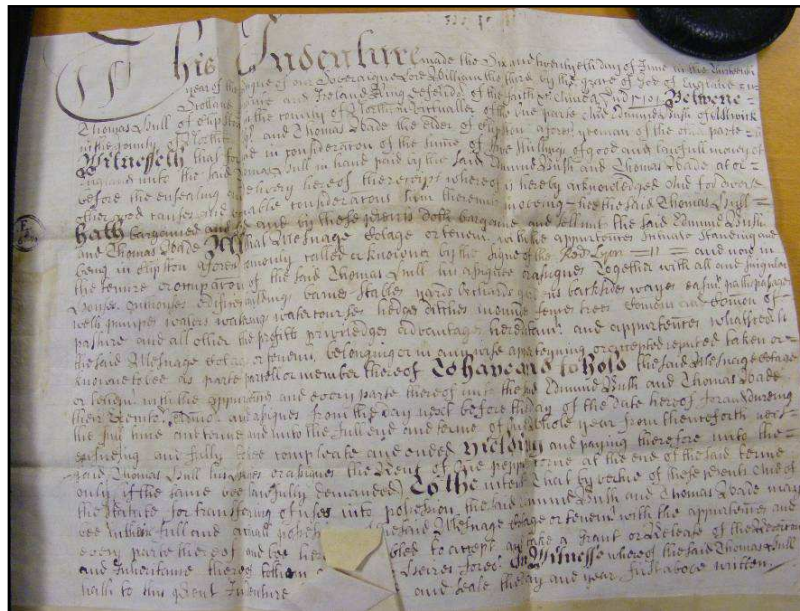 This Indenture made the Six and twentyeth day of June in the
year of the Reigne of our Soveraigne Lord William the third by the grace of God of England
Scotland and Ireland King defender of the faith Betweene
Thomas Bull of Clipston in the county of North victualler of the one parte And Edmund Bush of
in the county of and Thomas Wade the elder of Clipston aforesd yeoman of the other parte
Witnesseth that for and in consideracon of the summe of five shillings of good and lawfull money of
England unto the said Thomas Bull in hand paid by the said Edmund Bush and Thomas Wade at or
before the ensealing and delivery hereof the receipt whereof is hereby acknowledged And for diverse
other good causes and valuable consideracons him thereunto moveing hee the said Thomas Bull
Hath bargained and sold and by these presents doth bargaine and sell unto the said Edmund Bush
and Thomas Wade All that Messuage Cotage or tenemt with the appurtences scituate standing and
being in Clipston aforesd comonly called or knowne by the Signe of the Red Lyon and now in
the tenure or occupacon of the said Thomas Bull his assignee or assignes Together with all and singular
houses outhouses edifices buildings barnes stables yards orchards backsides wayes easmts paths passages
wells pumpes waters watercourses hedges ditches mounds fences trees comons and comon of
pasture and all other the profits priviledges advantages hereditamts and appurtences whatsoever
the said Messuage Cotage or tenemt belonging or in any wise apperteyning or accepted reputed taken or
knowne to bee as parte parcell or member thereof To have and to hold the said Messuage Cotage
or tenemt with the appurtences and every parte thereof unto the sd Edmund Bush and Thomas Wade
their and assignes from the day next before the day of the date hereof for and dureing
the full time and terme and unto the full end and terme of one whole year from thenceforth next
ensueing and fully to bee compleate and ended Yielding and paying therefore unto the
said Thomas Bull his heires or assignes the Rent of one pepper corne at the end of the said terme
only if the same bee lawfully demanded To the intent that by vertue of these presents And of
the statute for transferring of uses into possession the said Edmund Bush and Thomas Wade may
bee in the full and actuall possession of the said Messuage Cotage or tenemt with the appurtences and
every parte thereof and bee hereby enabled to accept and take a Grant or Release of the Reversion
and Inheritance thereof to them and their Heires forever In Witnesse whereof the said Thomas Bull
hath to this present Indenture and seale the day and year first above written